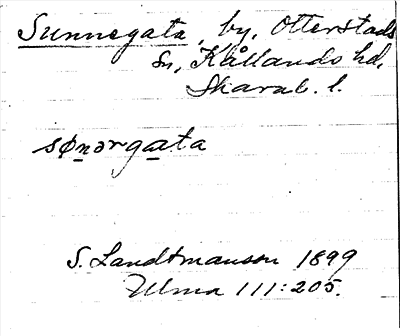 Sunnegata, by, Otterstads
Sn, Kållands hd,
Skarab. l.
sønərgata
S. Landtmanson 1899
Ulma 111:205.